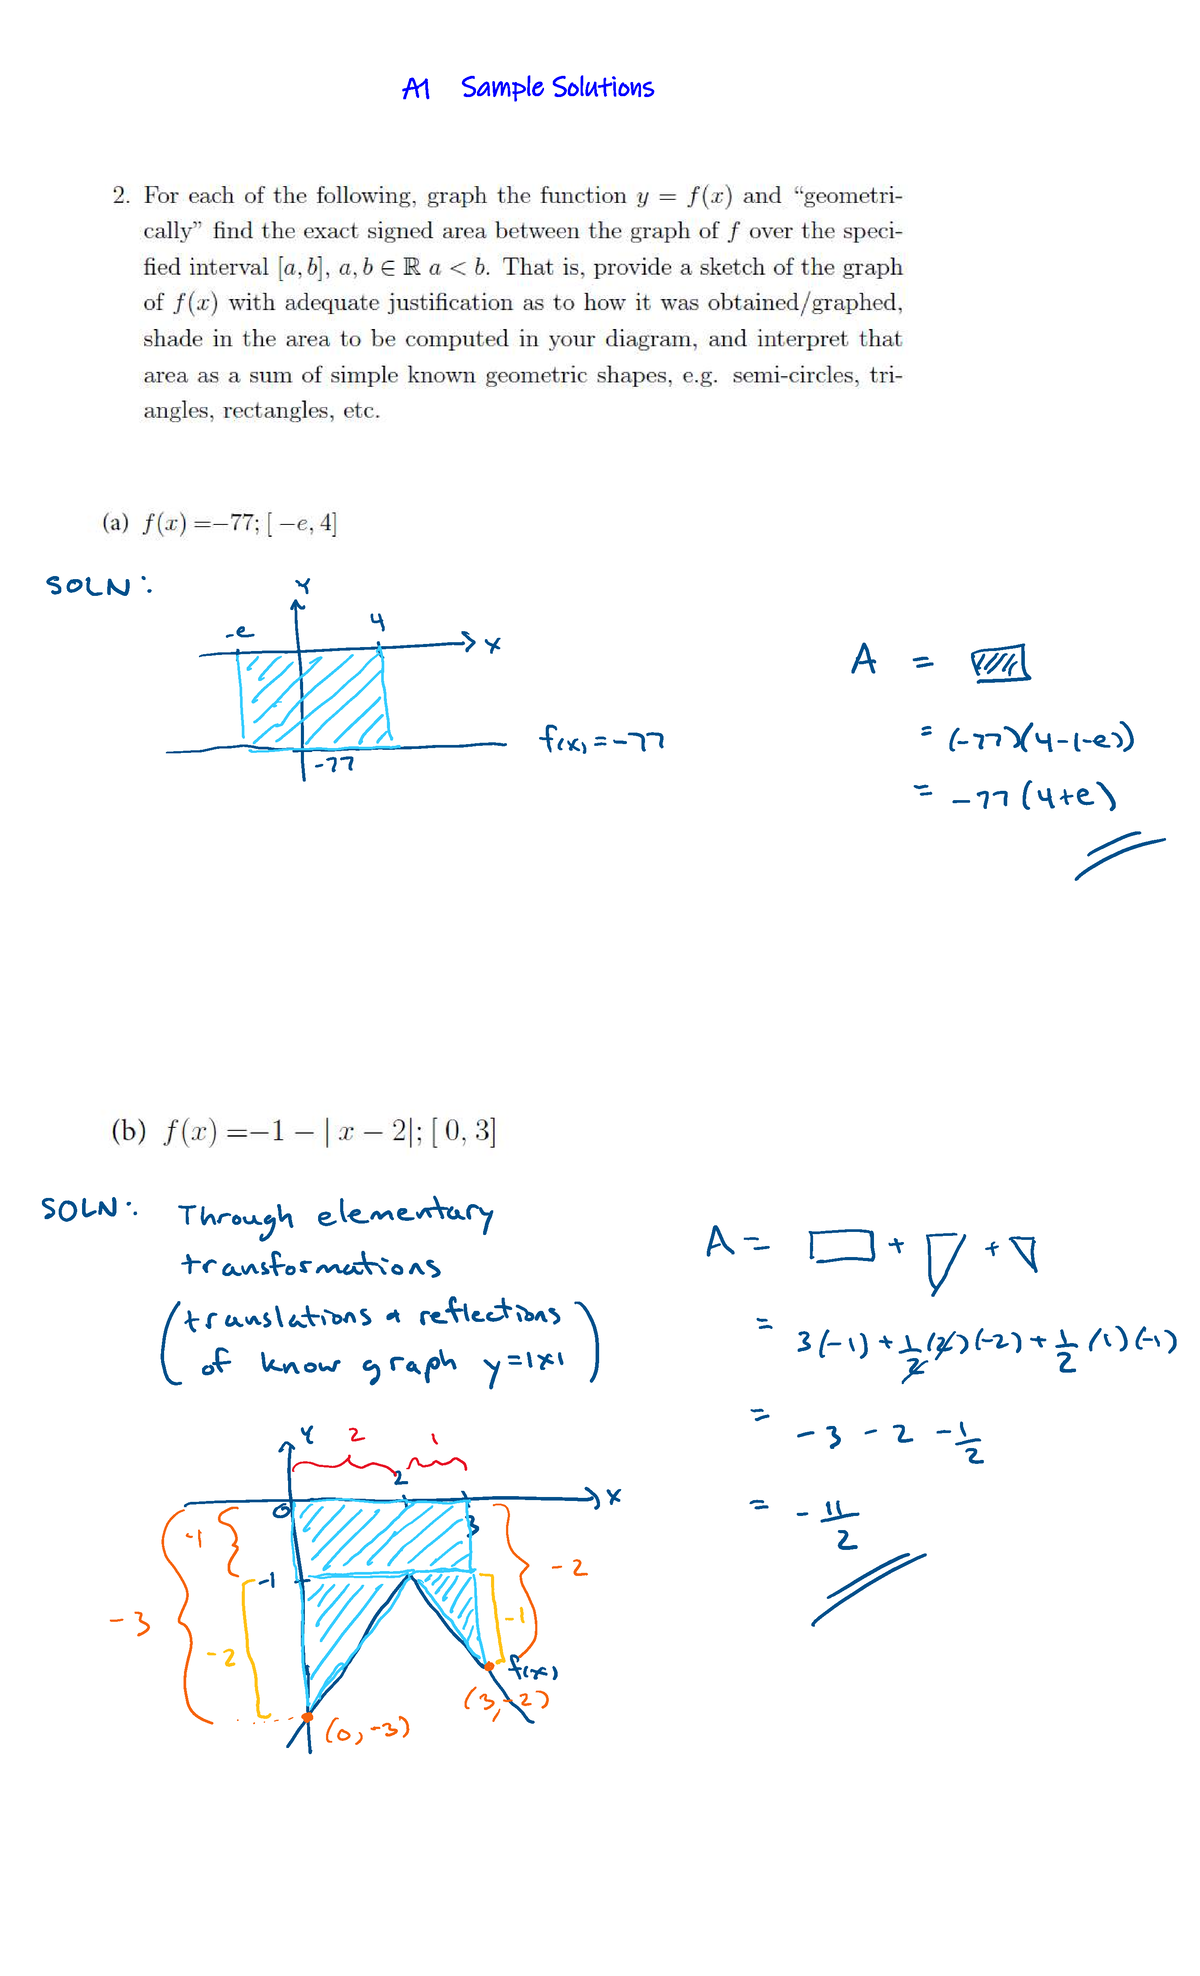 A1 Sample Solutions
2. For each of the following, graph the function y = f(x) and “geometri-
cally” find the exact signed area between the graph of f over the speci-
fied interval [a, b], a, b ∈ ℝ a < b. That is, provide a sketch of the graph
of f(x) with adequate justification as to how it was obtained/graphed,
shade in the area to be computed in your diagram, and interpret that
area as a sum of simple known geometric shapes, e.g. semi-circles, tri-
angles, rectangles, etc.
(a) f(x) =−77; [ −e, 4]
SOLN:
Y
-e
4
X
f(x) = -77
-77
A =
= (-77)(4-(-e))
= -77(4+e)
(b) f(x) =−1 − | x − 2|; [ 0, 3]
SOLN: Through elementary
transformations
(translations & reflections
of know graph y=|x|)
A = + +
= 3(-1) + 1/2 (2)(-2) + 1/2 (1)(-1)
= -3 - 2 - 1/2
= - 11/2
Y
2
1
2
X
0
3
-1
-2
-1
-3
-1
-2
f(x)
(3,-2)
(0,-3)